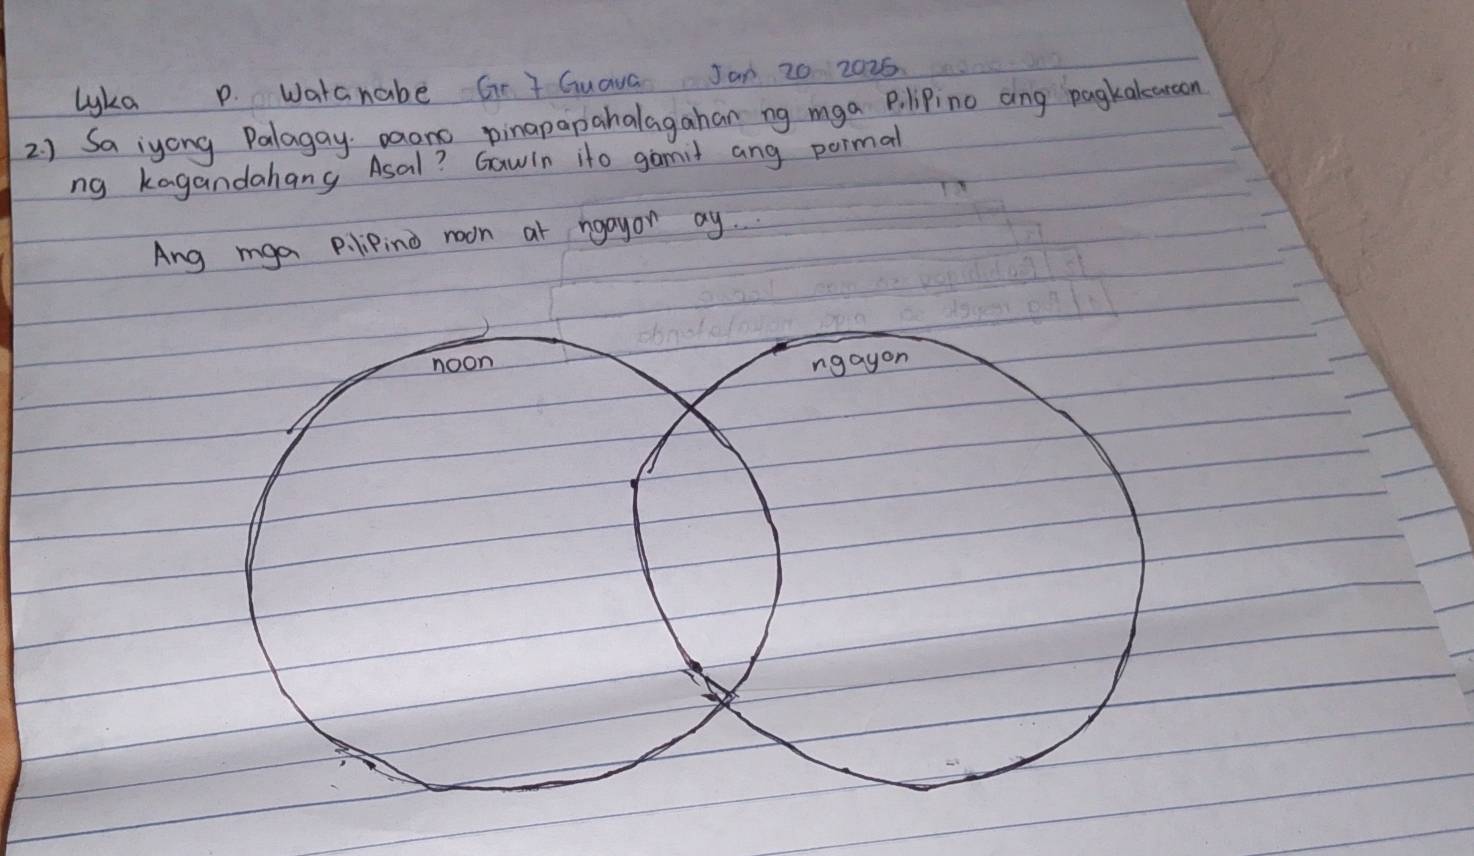 Lyka P. Watanabe Gr 7 Guava Jan 20 2025
2.) Sa iyong Palagay. paano pinapapahalagahan ng mga PiliPino ang pagkakaroon
ng kagandahang Asal? Gawin ito gamit ang pormal
Ang mga PiliPino noon at ngayon ay...
noon
ngayon